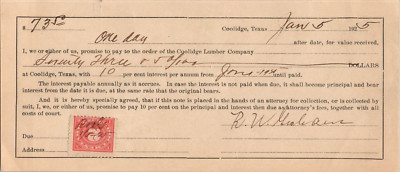 $ 73 50 Coolidge, Texas, Jan 5 1925
One day after date, for value received,
I, we or either of us, promise to pay to the order of the Coolidge Lumber Company
Seventy Three & 50/100 DOLLARS
at Coolidge, Texas, with 10 per cent interest per annum from until paid.
The interest payable annually as it accrues. In case the interest is not paid when due, it shall become principal and bear
interest from the date it is due, at the same rate that the original bears.
And it is hereby specially agreed, that if this note is placed in the hands of an attorney for collection, or is collected by
suit, I, we or either of us, promise to pay 10 per cent on the principal and interest then due as attorney's fee, together with all
costs of court.
R. W.
Due
Address